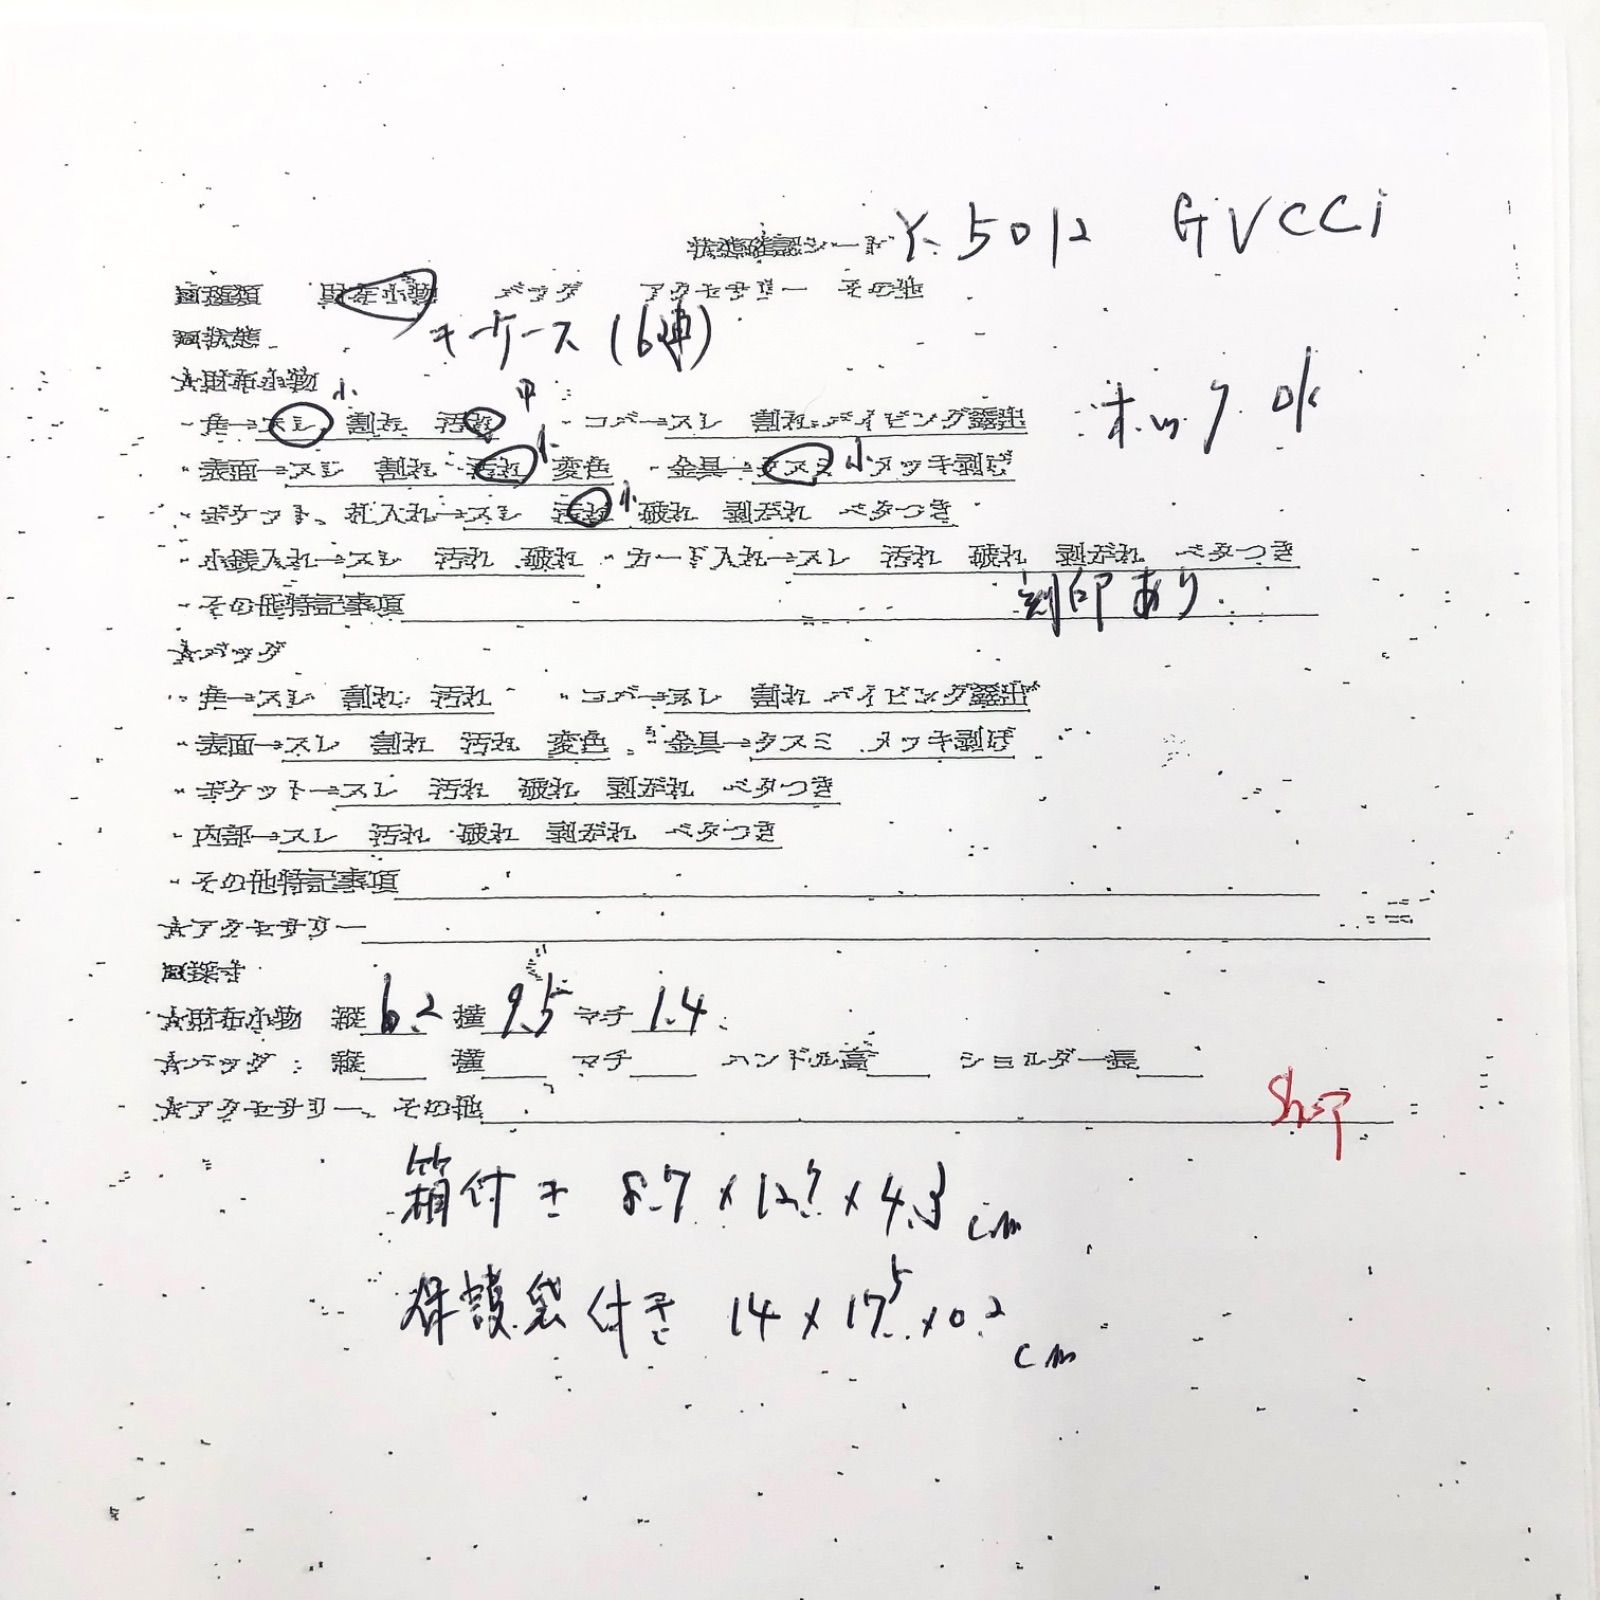 状態確認シード Y-5012 GUCCI
回種類 財布小物 バッグ アクセサリー その他
回状態 キーケース (6連)
☆財布小物 小 中
・角→スレ 割れ 汚れ ・コバ→スレ 割れ パイピング露出 ホック OK
・表面→スレ 割れ 汚れ 小 変色 ・金具→クスミ 小 メッキ剥げ
・ポケット、札入れ→スレ 汚れ 小 破れ 剥がれ ベタつき
・小銭入れ→スレ 汚れ 破れ ・カード入れ→スレ 汚れ 破れ 剥がれ ベタつき
・その他特記事項 刻印あり
☆バッグ
・角→スレ 割れ 汚れ ・コバ→スレ 割れ パイピング露出
・表面→スレ 割れ 汚れ 変色 ・金具→クスミ メッキ剥げ
・ポケット→スレ 汚れ 破れ 剥がれ ベタつき
・内部→スレ 汚れ 破れ 剥がれ ベタつき
・その他特記事項
☆アクセサリー
回採寸
☆財布小物 縦 6.2 横 9.5 マチ 1.4
☆バッグ 縦 横 マチ ハンドル高 ショルダー長
☆アクセサリー、その他
箱付き 8.7 × 12.7 × 4.3 cm
保護袋付き 14 × 17.5 × 0.2 cm